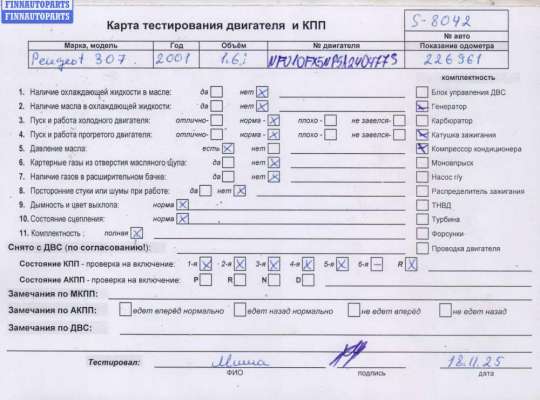 FINNAUTOPARTS
FINNAUTOPARTS
Карта тестирования двигателя и КПП
S-8042
№ авто
Марка, модель Год Объём № двигателя Показание одометра
Peugeot 307 2001 1.6i 226961
комплектность
1. Наличие охлаждающей жидкости в масле: да нет
Блок управления ДВС
2. Наличие масла в охлаждающей жидкости: да нет
Генератор
3. Пуск и работа холодного двигателя: отлично- норма - плохо - не завелся-
Карбюратор
4. Пуск и работа прогретого двигателя: отлично- норма - плохо - не завелся-
Катушка зажигания
5. Давление масла: есть нет
Компрессор кондиционера
6. Картерные газы из отверстия масляного щупа: да нет
Моновпрыск
7. Наличие газов в расширительном бачке: да нет
Насос г/у
8. Посторонние стуки или шумы при работе: да нет
Распределитель зажигания
9. Дымность и цвет выхлопа: норма
ТНВД
10. Состояние сцепления: норма
Турбина
11. Комплектность : полная
Форсунки
Снято с ДВС (по согласованию!):
Проводка двигателя
Состояние КПП - проверка на включение: 1-я 2-я 3-я 4-я 5-я 6-я R
Состояние АКПП - проверка на включение: P R N D
Замечания по МКПП:
Замечания по АКПП: едет вперёд нормально едет назад нормально не едет вперёд не едет назад
Замечания по ДВС:
Тестировал: Миша 18.11.25
ФИО подпись дата